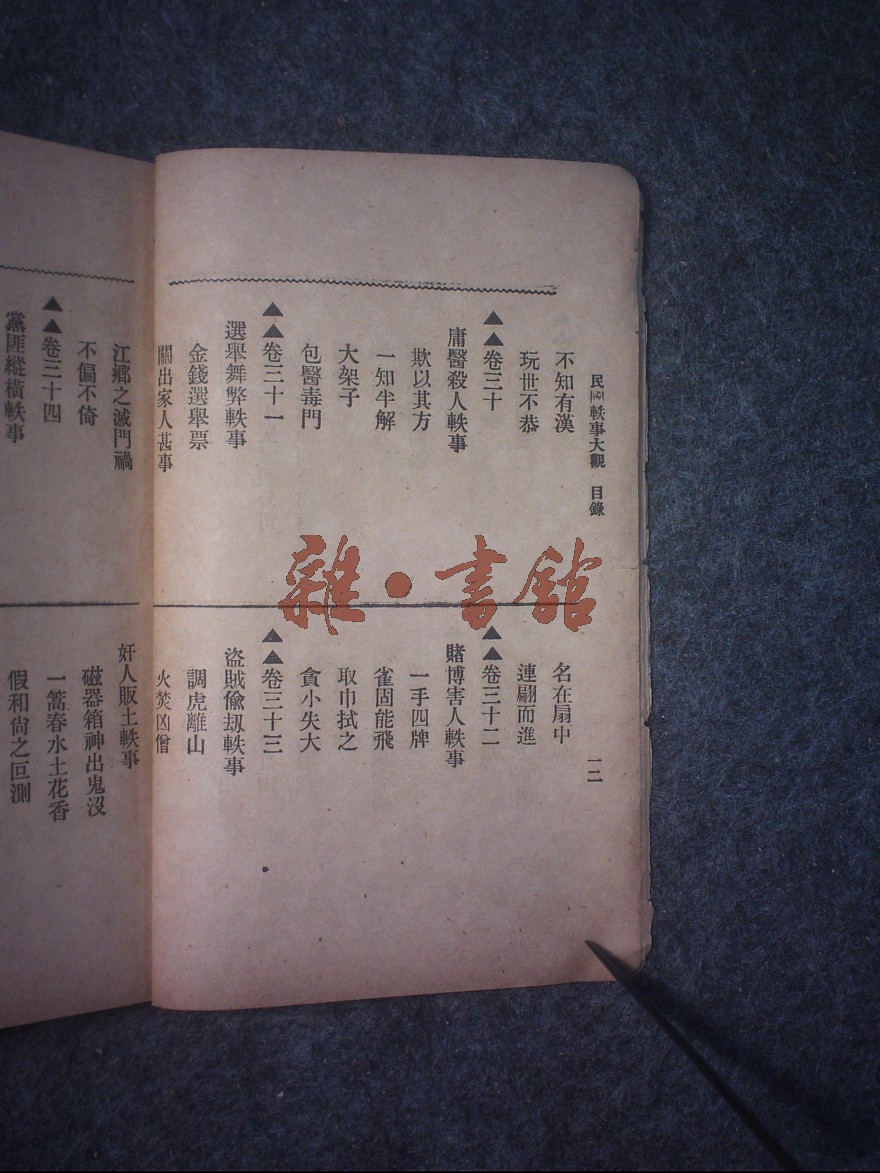 民國軼事大觀 目錄
一二
不知有漢
玩世不恭
▲▲卷三十
庸醫殺人軼事
欺以其方
一知半解
大架子
包醫毒門
▲▲卷三十一
選舉舞弊軼事
金錢選舉票
關出家人甚事
名在扇中
連翩而進
▲▲卷三十二
賭博害人軼事
一手四牌
雀固能飛
取巾拭之
貪小失大
▲▲卷三十三
盜賊偷刼軼事
調虎離山
火焚凶僧
江鄉之滅門禍
不偏不倚
▲▲卷三十四
黨匪縱橫軼事
奸人販土軼事
磁器箱神出鬼沒
一篙春水土花香
假和尙之叵測
雜·書館